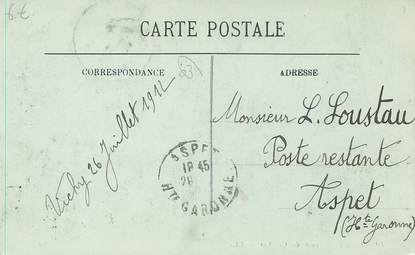 6.€
CARTE POSTALE
CORRESPONDANCE
ADRESSE
Vichy 26 Juillet 1912
ASPET
18 45
28
Hte GARONNE
Monsieur L. Loustau
Poste restante
Aspet
(Hte Garonne)